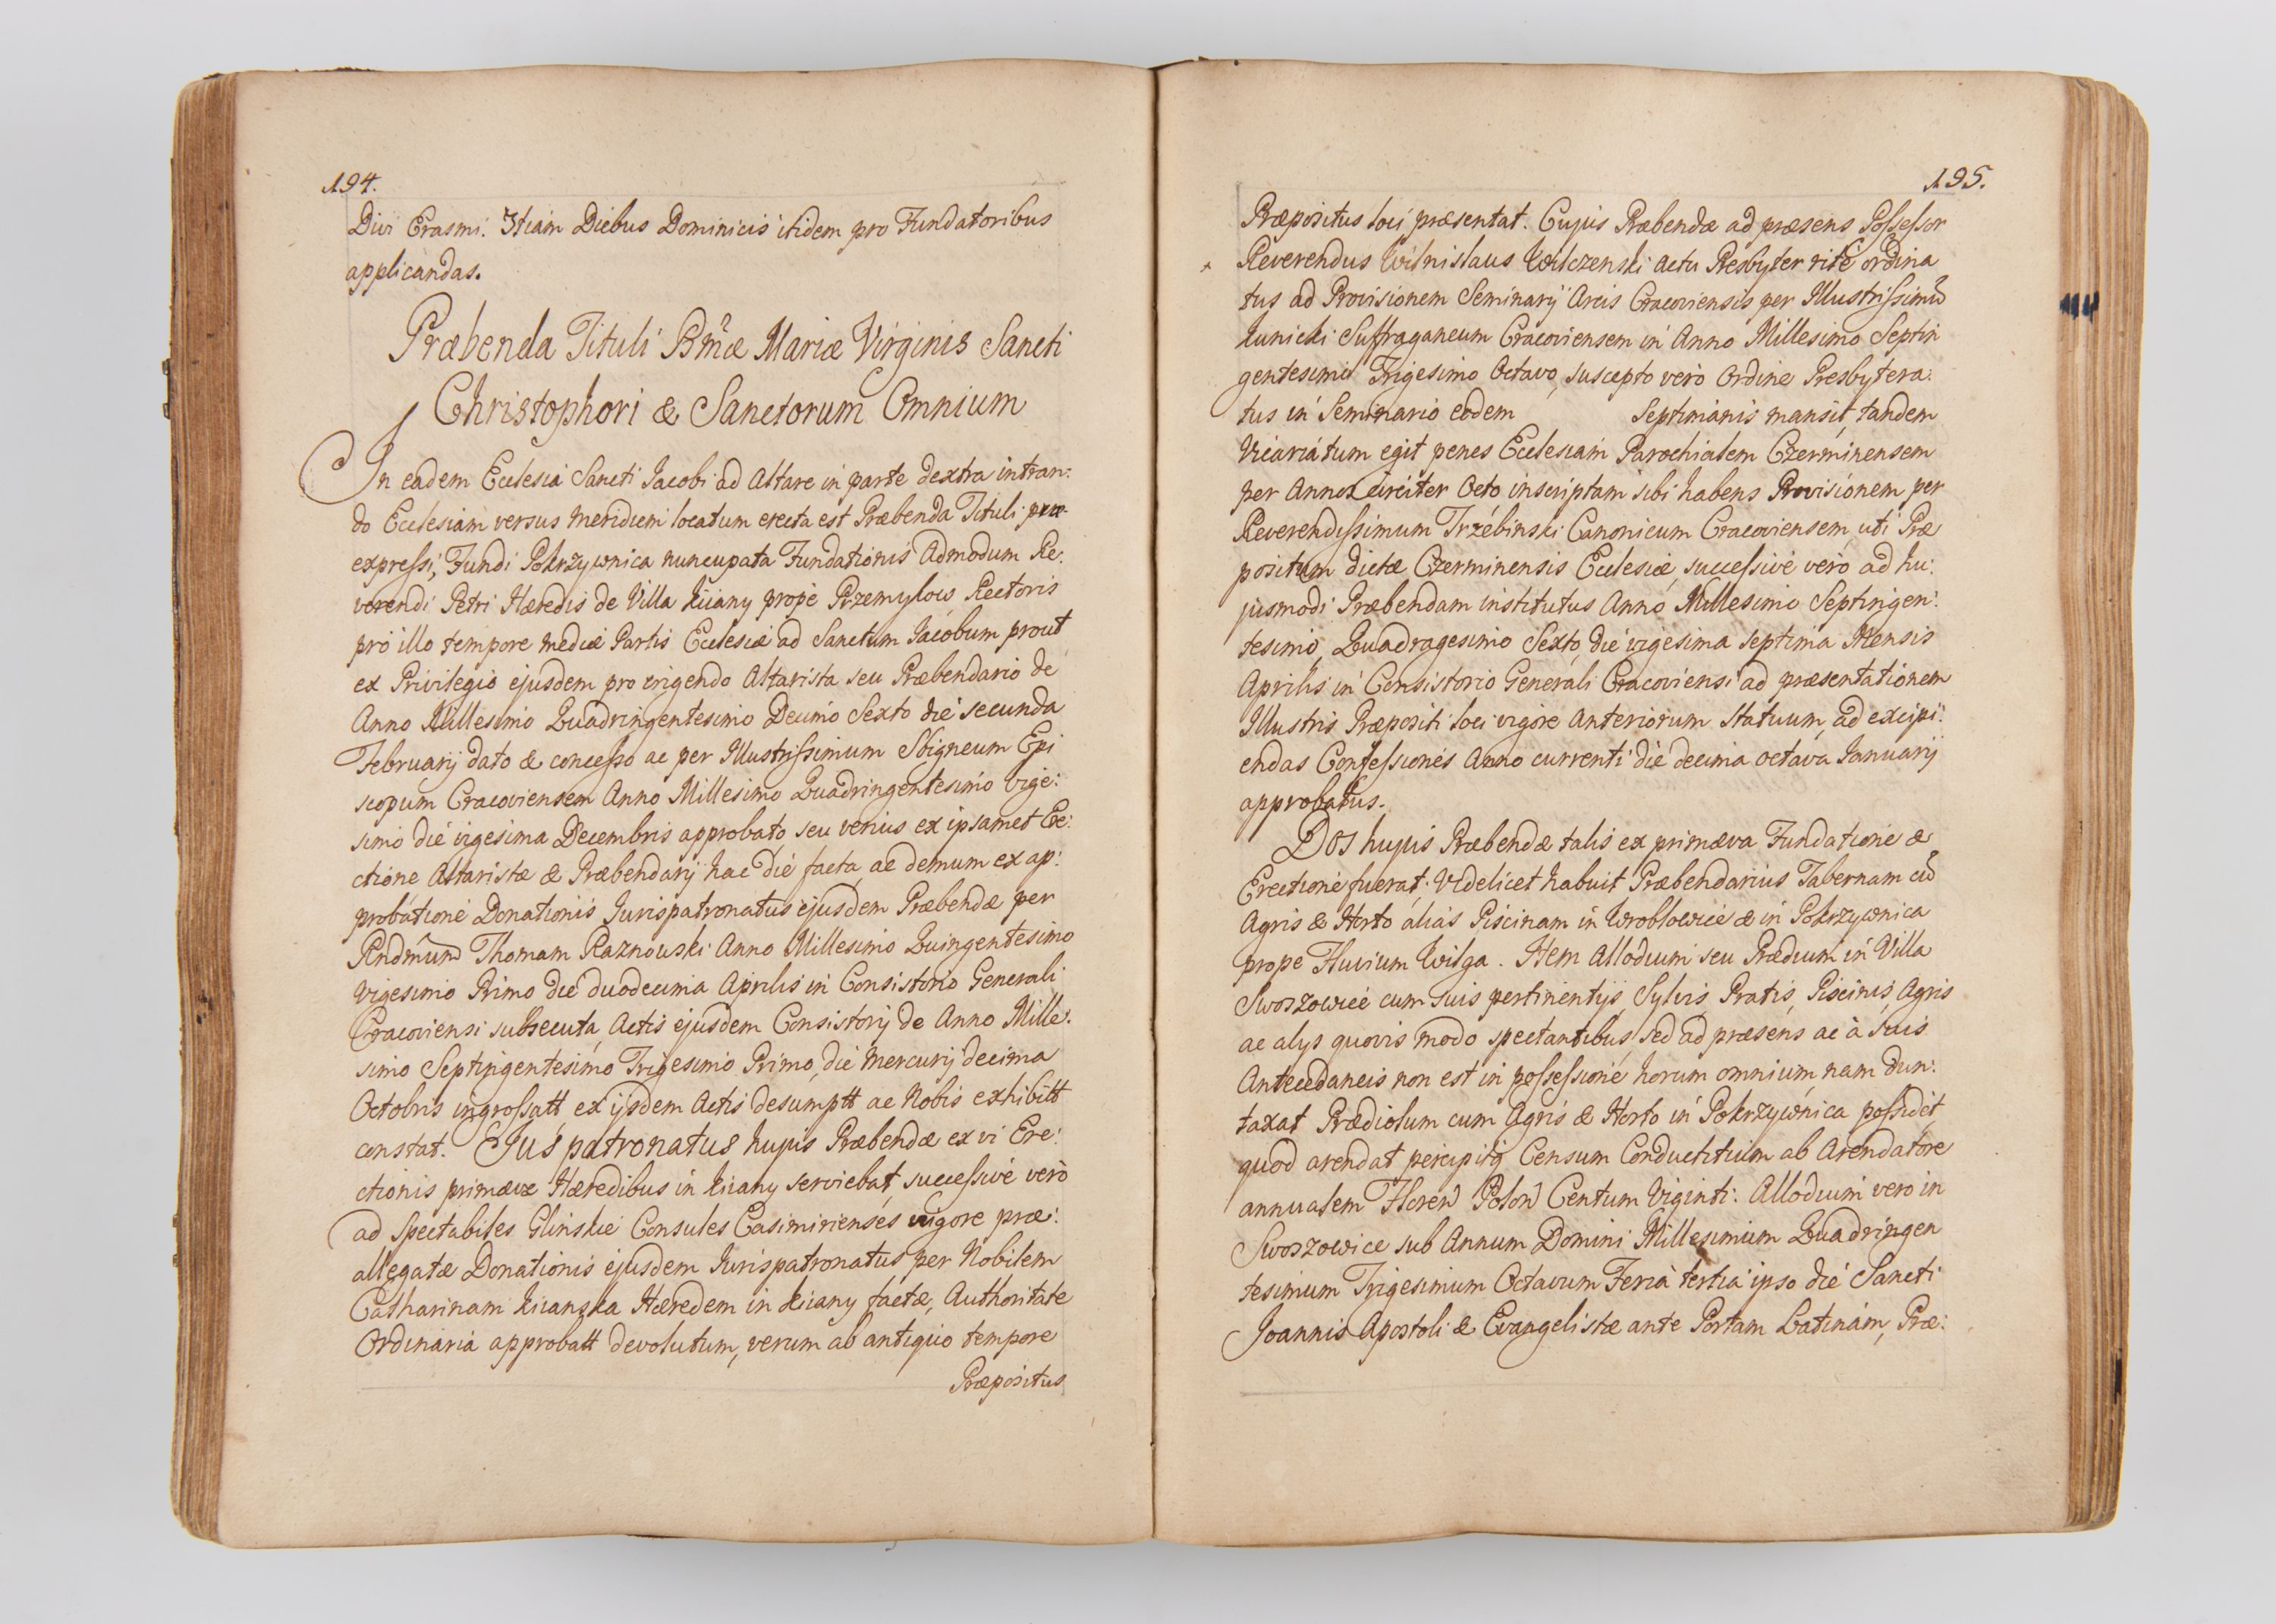 194.
Divi Erasmi. Etiam Diebus Dominicis itidem pro Fundatoribus
applicandas.
Præbenda Tituli Bmæ Mariæ Virginis Sancti
Christophori & Sanctorum Omnium
In eadem Ecclesia Sancti Jacobi ad Altare in parte dextra intran:
do Ecclesiam versus meridiem locatum erecta est Præbenda Tituli præ-
expressi, Fundi Pokrzywnica nuncupata Fundationis Admodum Re:
verendi Petri Hæredis de Villa Kiiany prope Przemylow Rectoris
pro illo tempore mediæ Partis Ecclesiæ ad Sanctum Jacobum prout
ex Privilegio ejusdem pro erigendo Altarista seu Præbendario de
Anno Millesimo Quadringentesimo Decimo Sexto die secunda
Februarij dato & concesso ac per Illustrissimum Sbigneum Epi
scopum Cracoviensem Anno Millesimo Quadringentesimo Vige:
simo die vigesima Decembris approbato, seu verius ex ipsamet Ere:
ctione Altaristæ & Præbendarij hac die facta, ac demum ex ap:
probatione Donationis Jurispatronatus ejusdem Præbendæ per
Rndmum Thomam Raznowski Anno Millesimo Quingentesimo
Vigesimo Primo die duodecima Aprilis in Consistorio Generali
Cracoviensi subsecuta, Actis ejusdem Consistorij de Anno Mille:
simo Septingentesimo Trigesimo Primo, die Mercurij decima
Octobris ingrossatt ex ijsdem Actis desumptt ac Nobis exhibitt
constat. Jus patronatus hujus Præbendæ ex vi Ere:
ctionis primævæ Hæredibus in Kiiany serviebat, successive verò
ad Spectabiles Glinskie Consules Casimirienses vigore præ:
allegatæ Donationis ejusdem Jurispatronatus per Nobilem
Catharinam Kiianska Hæredem in Kiiany factæ, Authoritate
Ordinaria approbatt devolutum, verum ab antiquo tempore
Præpositus
195.
Præpositus loci præsentat. Cujus Præbendæ ad præsens Possessor
Reverendus Wilnislaus Wilczenski actu Presbyter rite ordina
tus ad Provisionem Seminarij Arcis Cracoviensis per Illustrissimū
Kunicki Suffraganeum Cracoviensem in Anno Millesimo Septin
gentesimo Trigesimo Octavo, suscepto verò Ordine Presbytera:
tus in Seminario eodem septimanis mansit, tandem
Vicariatum egit penes Ecclesiam Parochialem Czerminensem
per Annos circiter Octo inscriptam sibi habens Provisionem per
Reverendissimum Trzebinski Canonicum Cracoviensem, uti Præ
positum dictæ Czerminensis Ecclesiæ, successive verò ad hu:
jusmodi Præbendam institutus Anno Millesimo Septingen:
tesimo, Quadragesimo Sexto, die vigesima septima Mensis
Aprilis in Consistorio Generali Cracoviensi ad præsentationem
Illustris Præpositi loci vigore Anteriorum Statuum, ad excipi:
endas Confessiones Anno currenti die decima octava Januarij
approbatus.
Dos hujus Præbendæ talis ex primæva Fundatione &
Erectione fuerat. Videlicet habuit Præbendarius Tabernam cū
Agris & Horto alias Piscinam in Wroblowice & in Pokrzywnica
prope Fluvium Wilga. Item Allodium seu Prædium in Villa
Swoszowice cum suis pertinentijs, Sylvis, Pratis, Piscinis, Agris
ac alys quovis modo spectantibus, sed ad præsens ac à suis
Antecedaneis non est in possessione horum omnium, nam dun:
taxat Prædiolum cum Agris & Horto in Pokrzywnica possidet
quod arendat percipitq Censum Conductitium ab Arendatore
annualem Floren Polon Centum Viginti. Allodium vero in
Swoszowice sub Annum Domini Millesimum Quadringen
tesimum Trigesimum Octavum Feria tertia ipso die Sancti
Joannis Apostoli & Evangelistæ ante Portam Latinam, Præ: